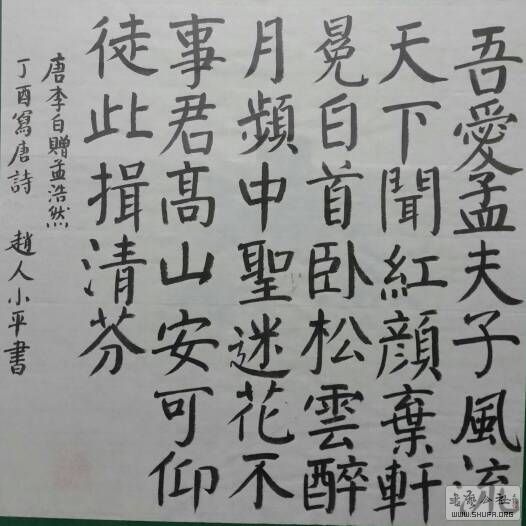 吾愛孟夫子風流
天下聞紅顔棄軒
冕白首卧松雲醉
月頻中聖迷花不
事君高山安可仰
徒此揖清芬
唐李白贈孟浩然
丁酉寫唐詩 趙人小平書
WWW.SHUFA.ORG